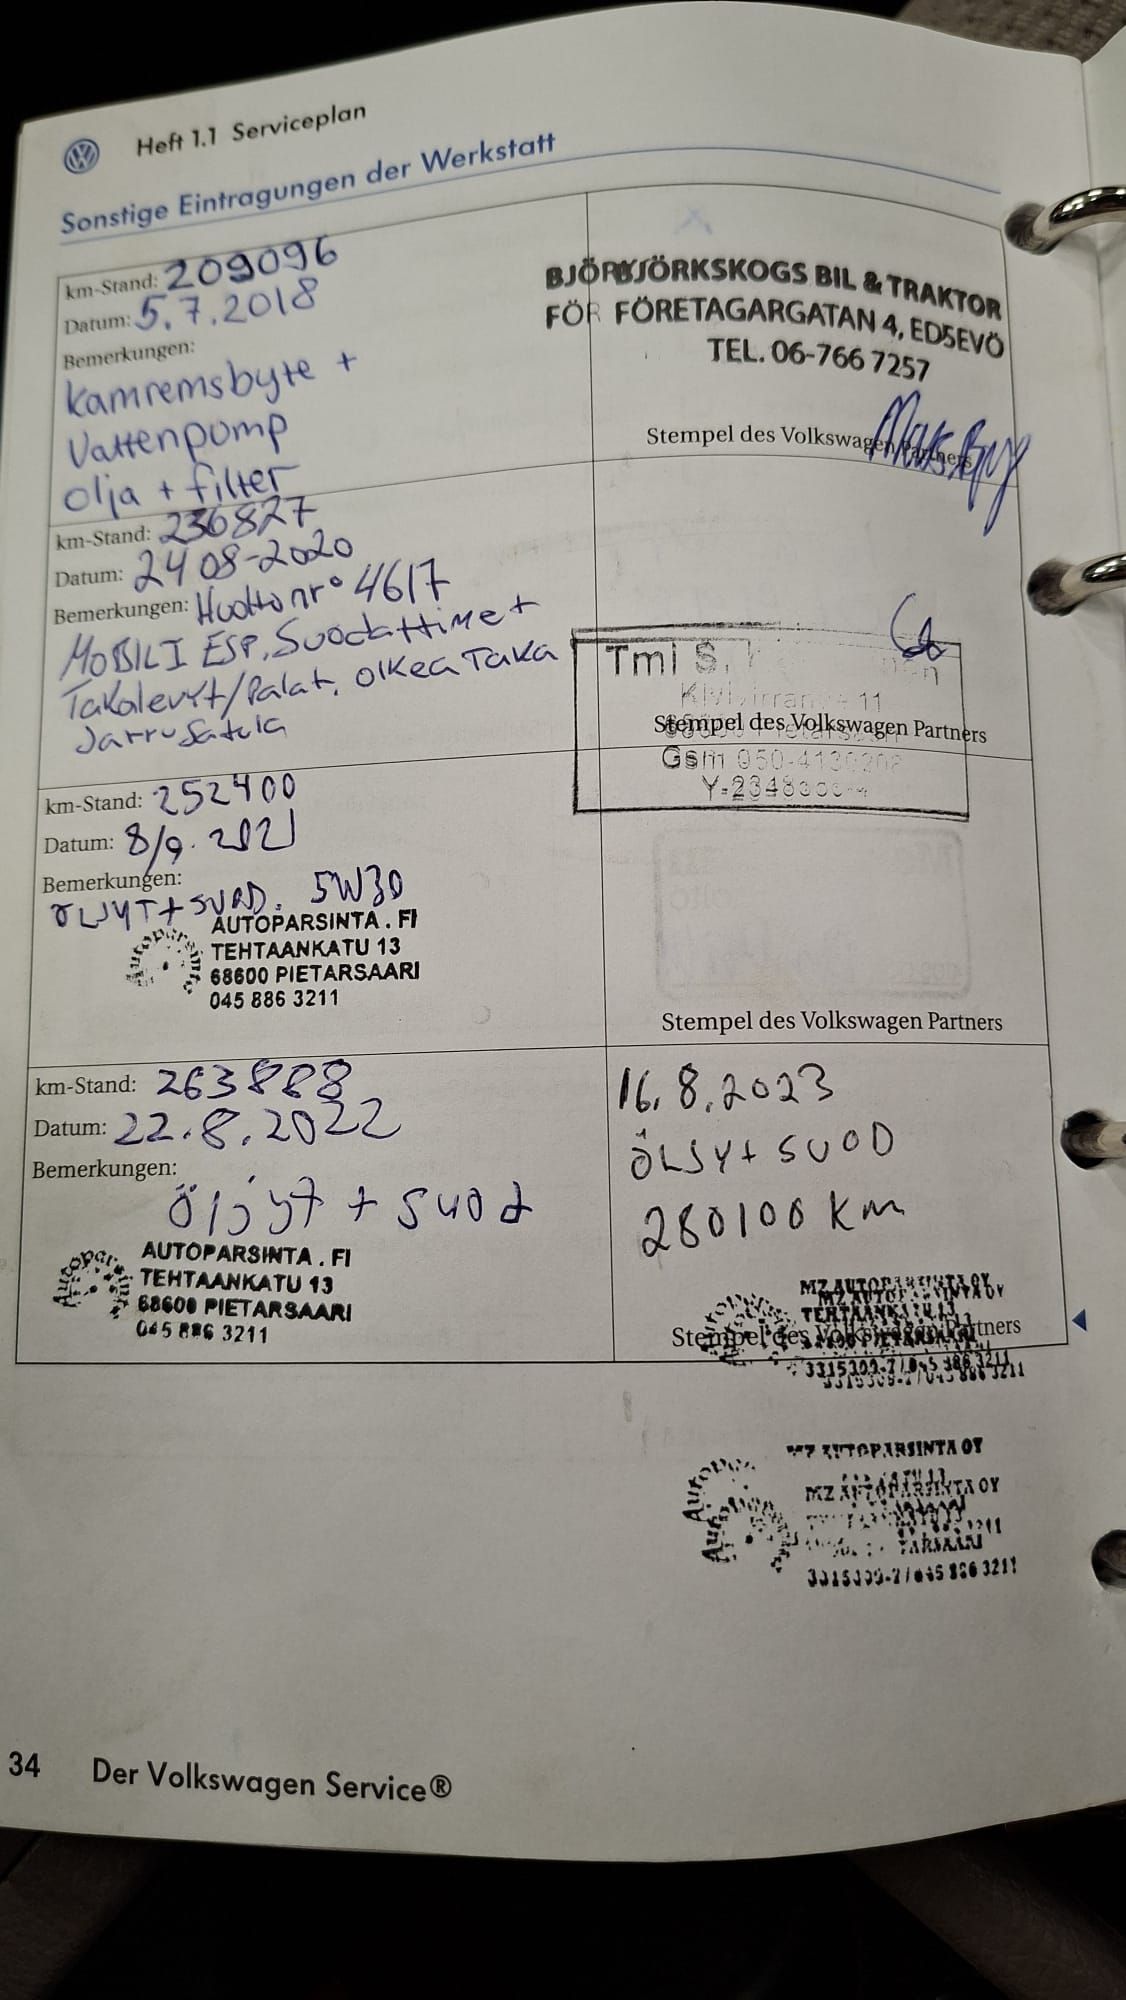 Heft 1.1 Serviceplan
Sonstige Eintragungen der Werkstatt
km-Stand: 209096
Datum: 5.7.2018
Bemerkungen:
Kamremsbyte +
Vattenpump
olja + filter
BJÖRKSKOGS BIL & TRAKTOR
FÖRETAGARGATAN 4, EDSEVÖ
TEL. 06-766 7257
Stempel des Volkswagen Partners
km-Stand: 236827
Datum: 24 08-2020
Bemerkungen: Huolto nro 4617
MOBIL I ESP, Suodattimet
Takalevyt/Palat, OIKEA TAKA
Jarrusatula
Tml S.
Stempel des Volkswagen Partners
Gsm 050-4130208
km-Stand: 252400
Datum: 8/9. 2021
Bemerkungen:
ÖLJYT + SUOD. 5W30
AUTOPARSINTA . FI
TEHTAANKATU 13
68600 PIETARSAARI
045 886 3211
Stempel des Volkswagen Partners
km-Stand: 263888
Datum: 22.8.2022
Bemerkungen:
Öljyt + suod
AUTOPARSINTA . FI
TEHTAANKATU 13
68600 PIETARSAARI
045 886 3211
16.8.2023
ÖLJY+ SUOD
280100 km
MZ AUTOPARSINTA OY
TEHTAANKATU 13
Stempel des Volkswagen Partners
3315309-7 / 045 886 3211
MZ AUTOPARSINTA OY
MZ AUTOPARSINTA OY
3315309-7 / 045 886 3211
34 Der Volkswagen Service®